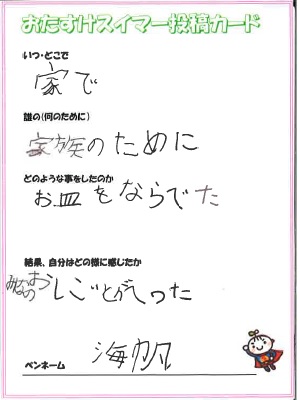 おたすけスイマー投稿カード
いつ・どこで
家で
誰の(何のために)
家族のために
どのような事をしたのか
お皿をならでた
結果、自分はどの様に感じたか
みなのおしごとがしった
海帆
ペンネーム